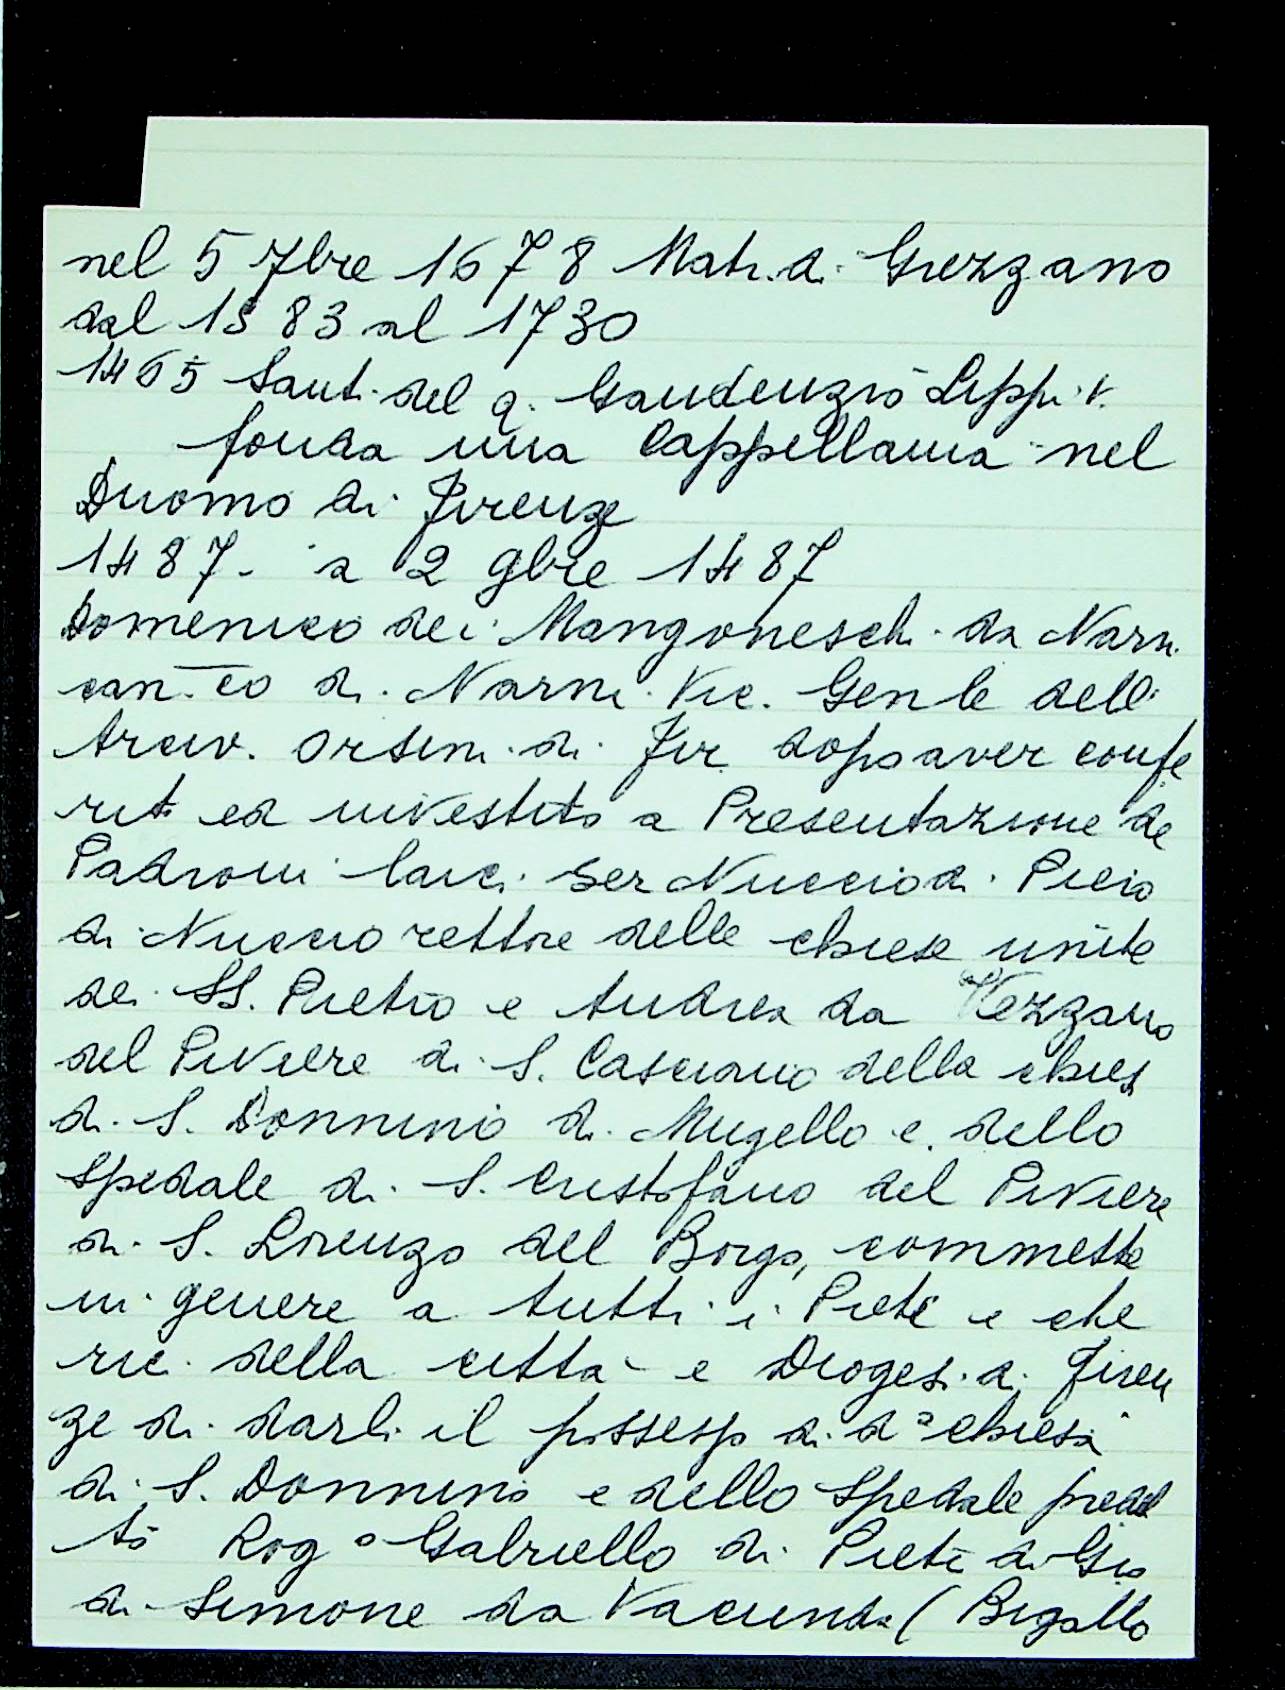 nel 5 7bre 1678 Matr. di Grezzano
dal 1583 al 1730
1465 Santi del q. Gaudenzio Lippi v.
fonda una Cappellania nel
Duomo di Firenze
1487 - a 2 9bre 1487
Domenico dei Mangoneschi da Narni
can.co di Narni Vic. Gen le dell'
Arciv. Orsini di Fir. dopo aver confe
rito ed investito a Presentazione de
Padroni laici ser Nuccio di Piero
di Nuccio rettore delle chiese unite
dei SS. Pietro e Andrea da Vezzano
del Piviere di S. Casciano della chies
di S. Donnino di Mugello e dello
Spedale di S. Cristofano del Piviere
di S. Lorenzo del Borgo, commette
in genere a tutti i Preti e che
rici della città e Diogesi di Firen
ze di darli il possesso di da chiesa
di S. Donnino e dello Spedale predet
to Rog o Gabriello di Preti di Gio
di Simone da (Bigallo